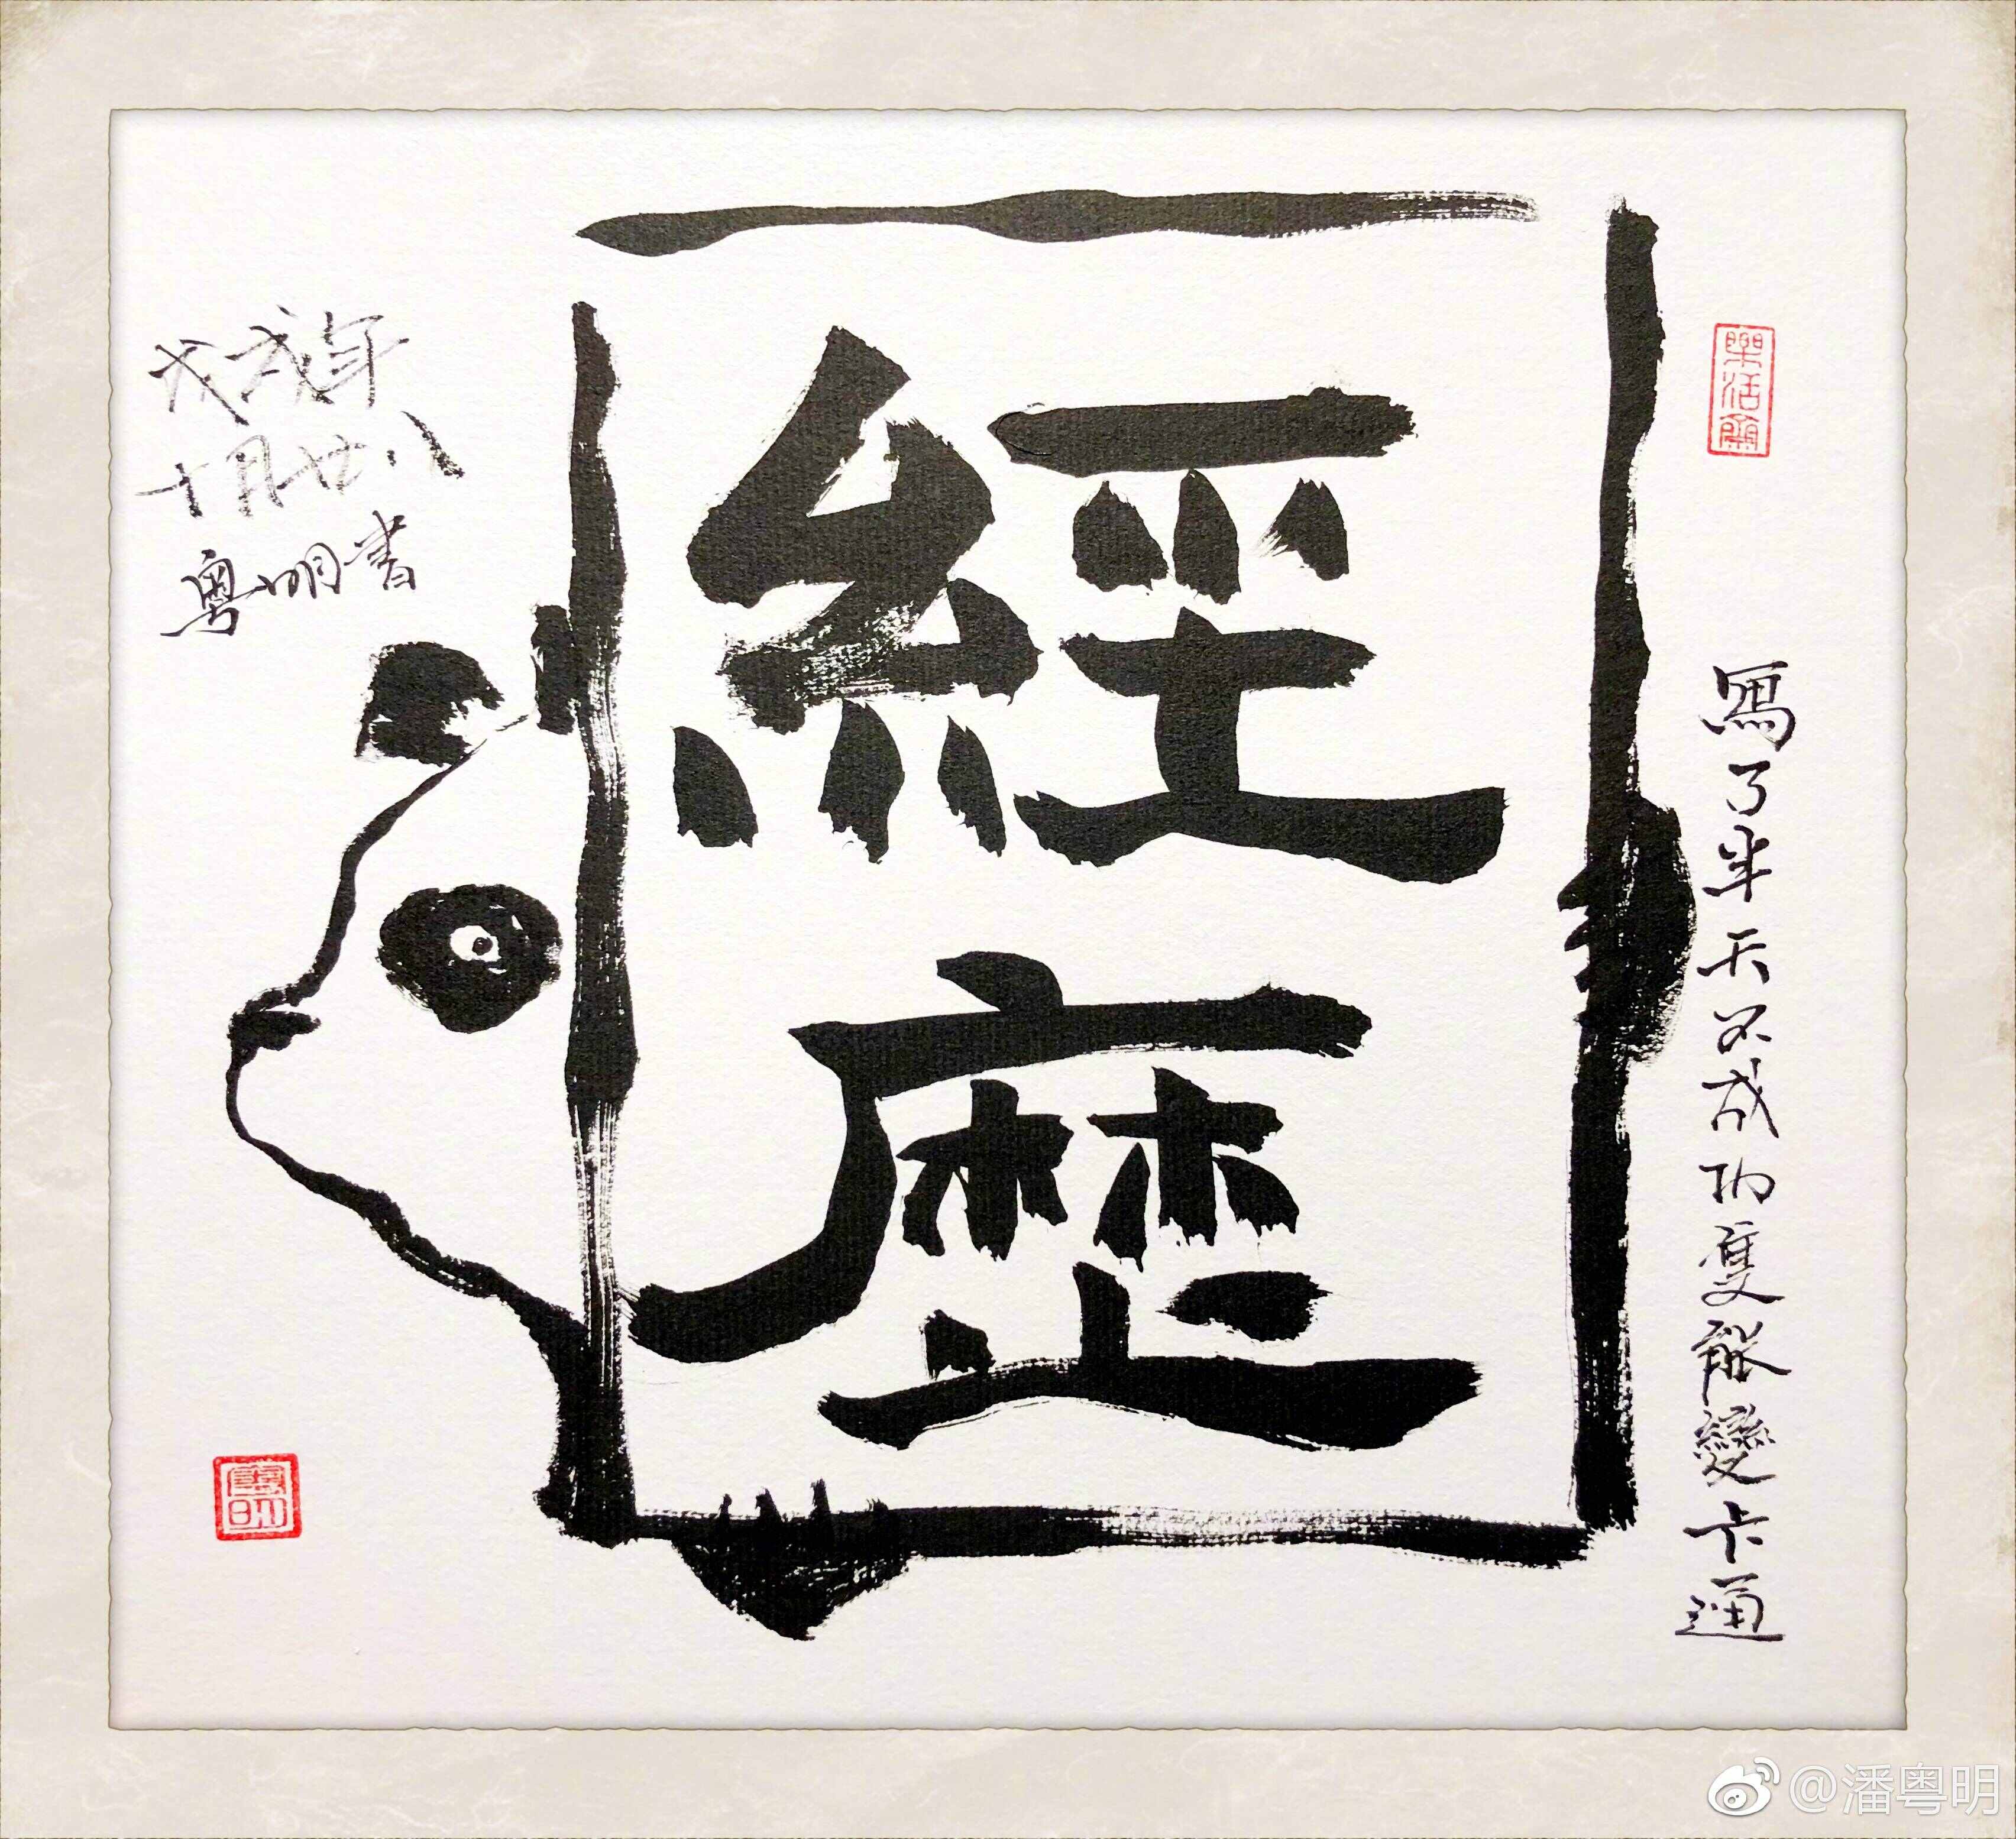 寫了半天不成功隻能變卡通
經歷
戊戌年
十月廿八
粵明書
粵明
@潘粤明